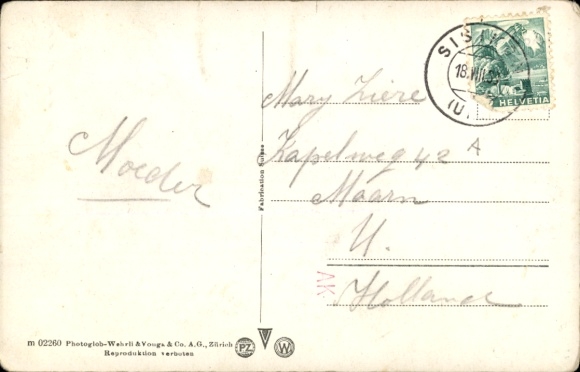 Moeder
Mary Ziere
Kapelweg 42 A
Maarn
U.
Holland
Fabrication Suisse
AK
HELVETIA
m 02260 Photoglob-Wehrli & Vouga & Co. A.G., Zürich
Reproduktion verboten
PZ
W